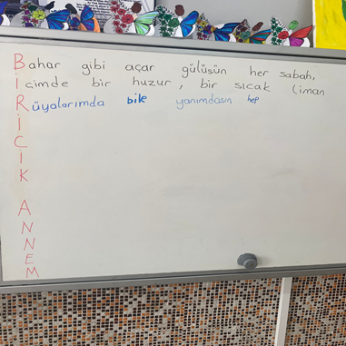 Bahar gibi açar gülüşün her sabah,
İçimde bir huzur, bir sıcak liman
Rüyalarımda bile yanımdasın hep
İ
C
İ
K
A
N
N
E
M